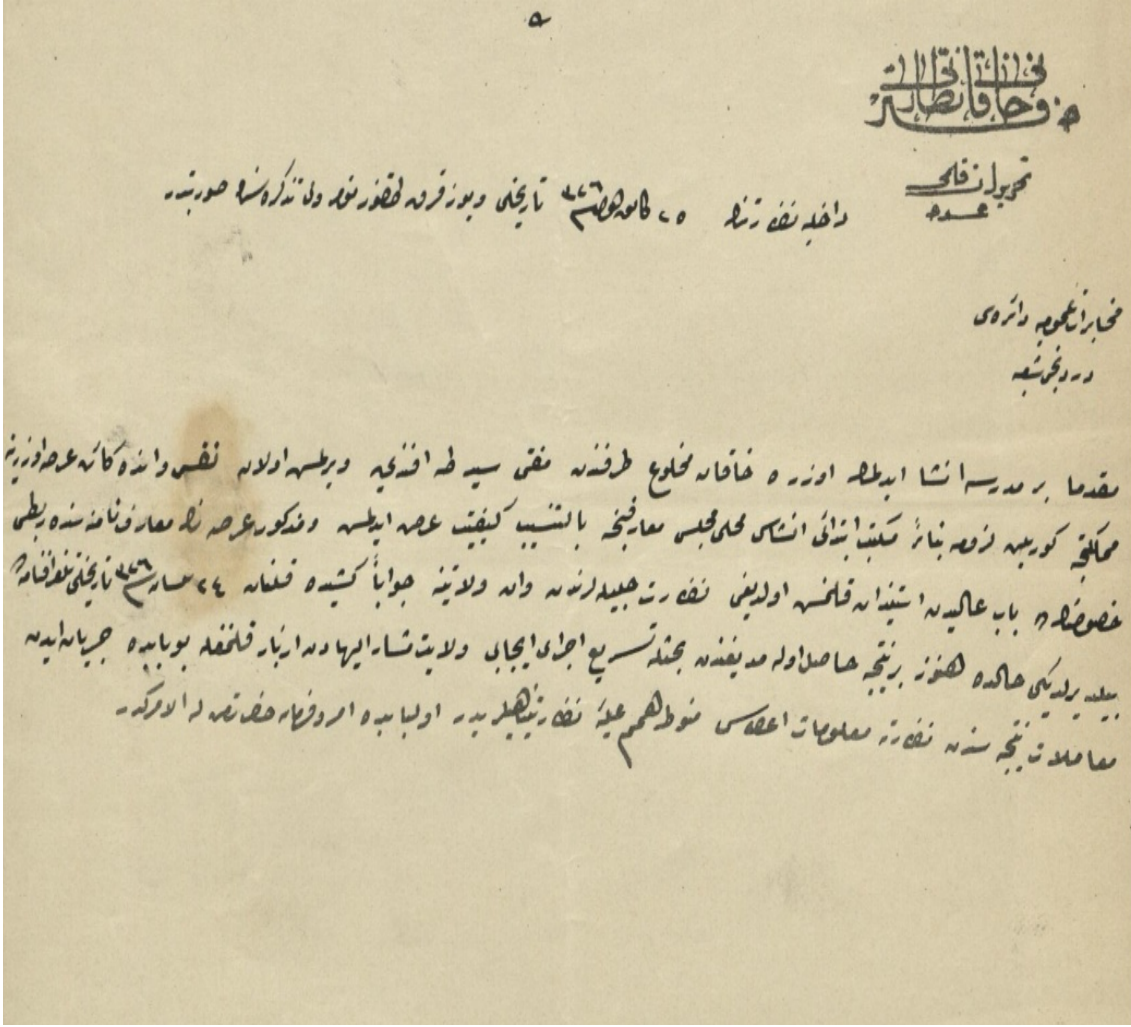 ٥
دفتر خاقانی نظارتی
تحریرات قلمی
عدد
داخلیه نظارتنه ٢٥ کانون ٣٢٦ تاریخلی ویوز قرق طقوز نومرولی تذکره صورتیدر
مخابرات عمومیه دائره‌سی
دردنجی شعبه
مقدما بر مدرسه انشا ایدلمك اوزره خاقان مخلوع طرفندن مفتی سید طه افندی ویرلمش اولان نفس وانده کائن عرصه اوزرینه
مملکتجه کوریلن لزومه بناءً مکتب ابتدائی انشاسی محلی مجلس معارفنجه بالتنسیب کیفیت عرض ایدلمش ومذکور عرصه‌نك معارف نامنه ربطی
خصوصنك باب عالیدن استیذان قلنمش اولدیغی نظارت جلیله‌لرندن وان ولایتنه جواباً کشیده قلنان ٢٤ ٣٢٦ تاریخلی تلغرافنامه‌ده
بیلدیرلدیکی حالده هنوز بر نتیجه حاصل اوله‌مدیغندن بحثله تسریع اجرای ایجابی ولایت مشار الیهادن اشعار قلنمغله بوبابده جریان ایدن
معاملات نتیجه‌سندن نظارته معلومات اعطاسی منوط همم علیهٔ نظارتپناهیلریدر اولبابده امر وفرمان حضرت من له الامرکدر